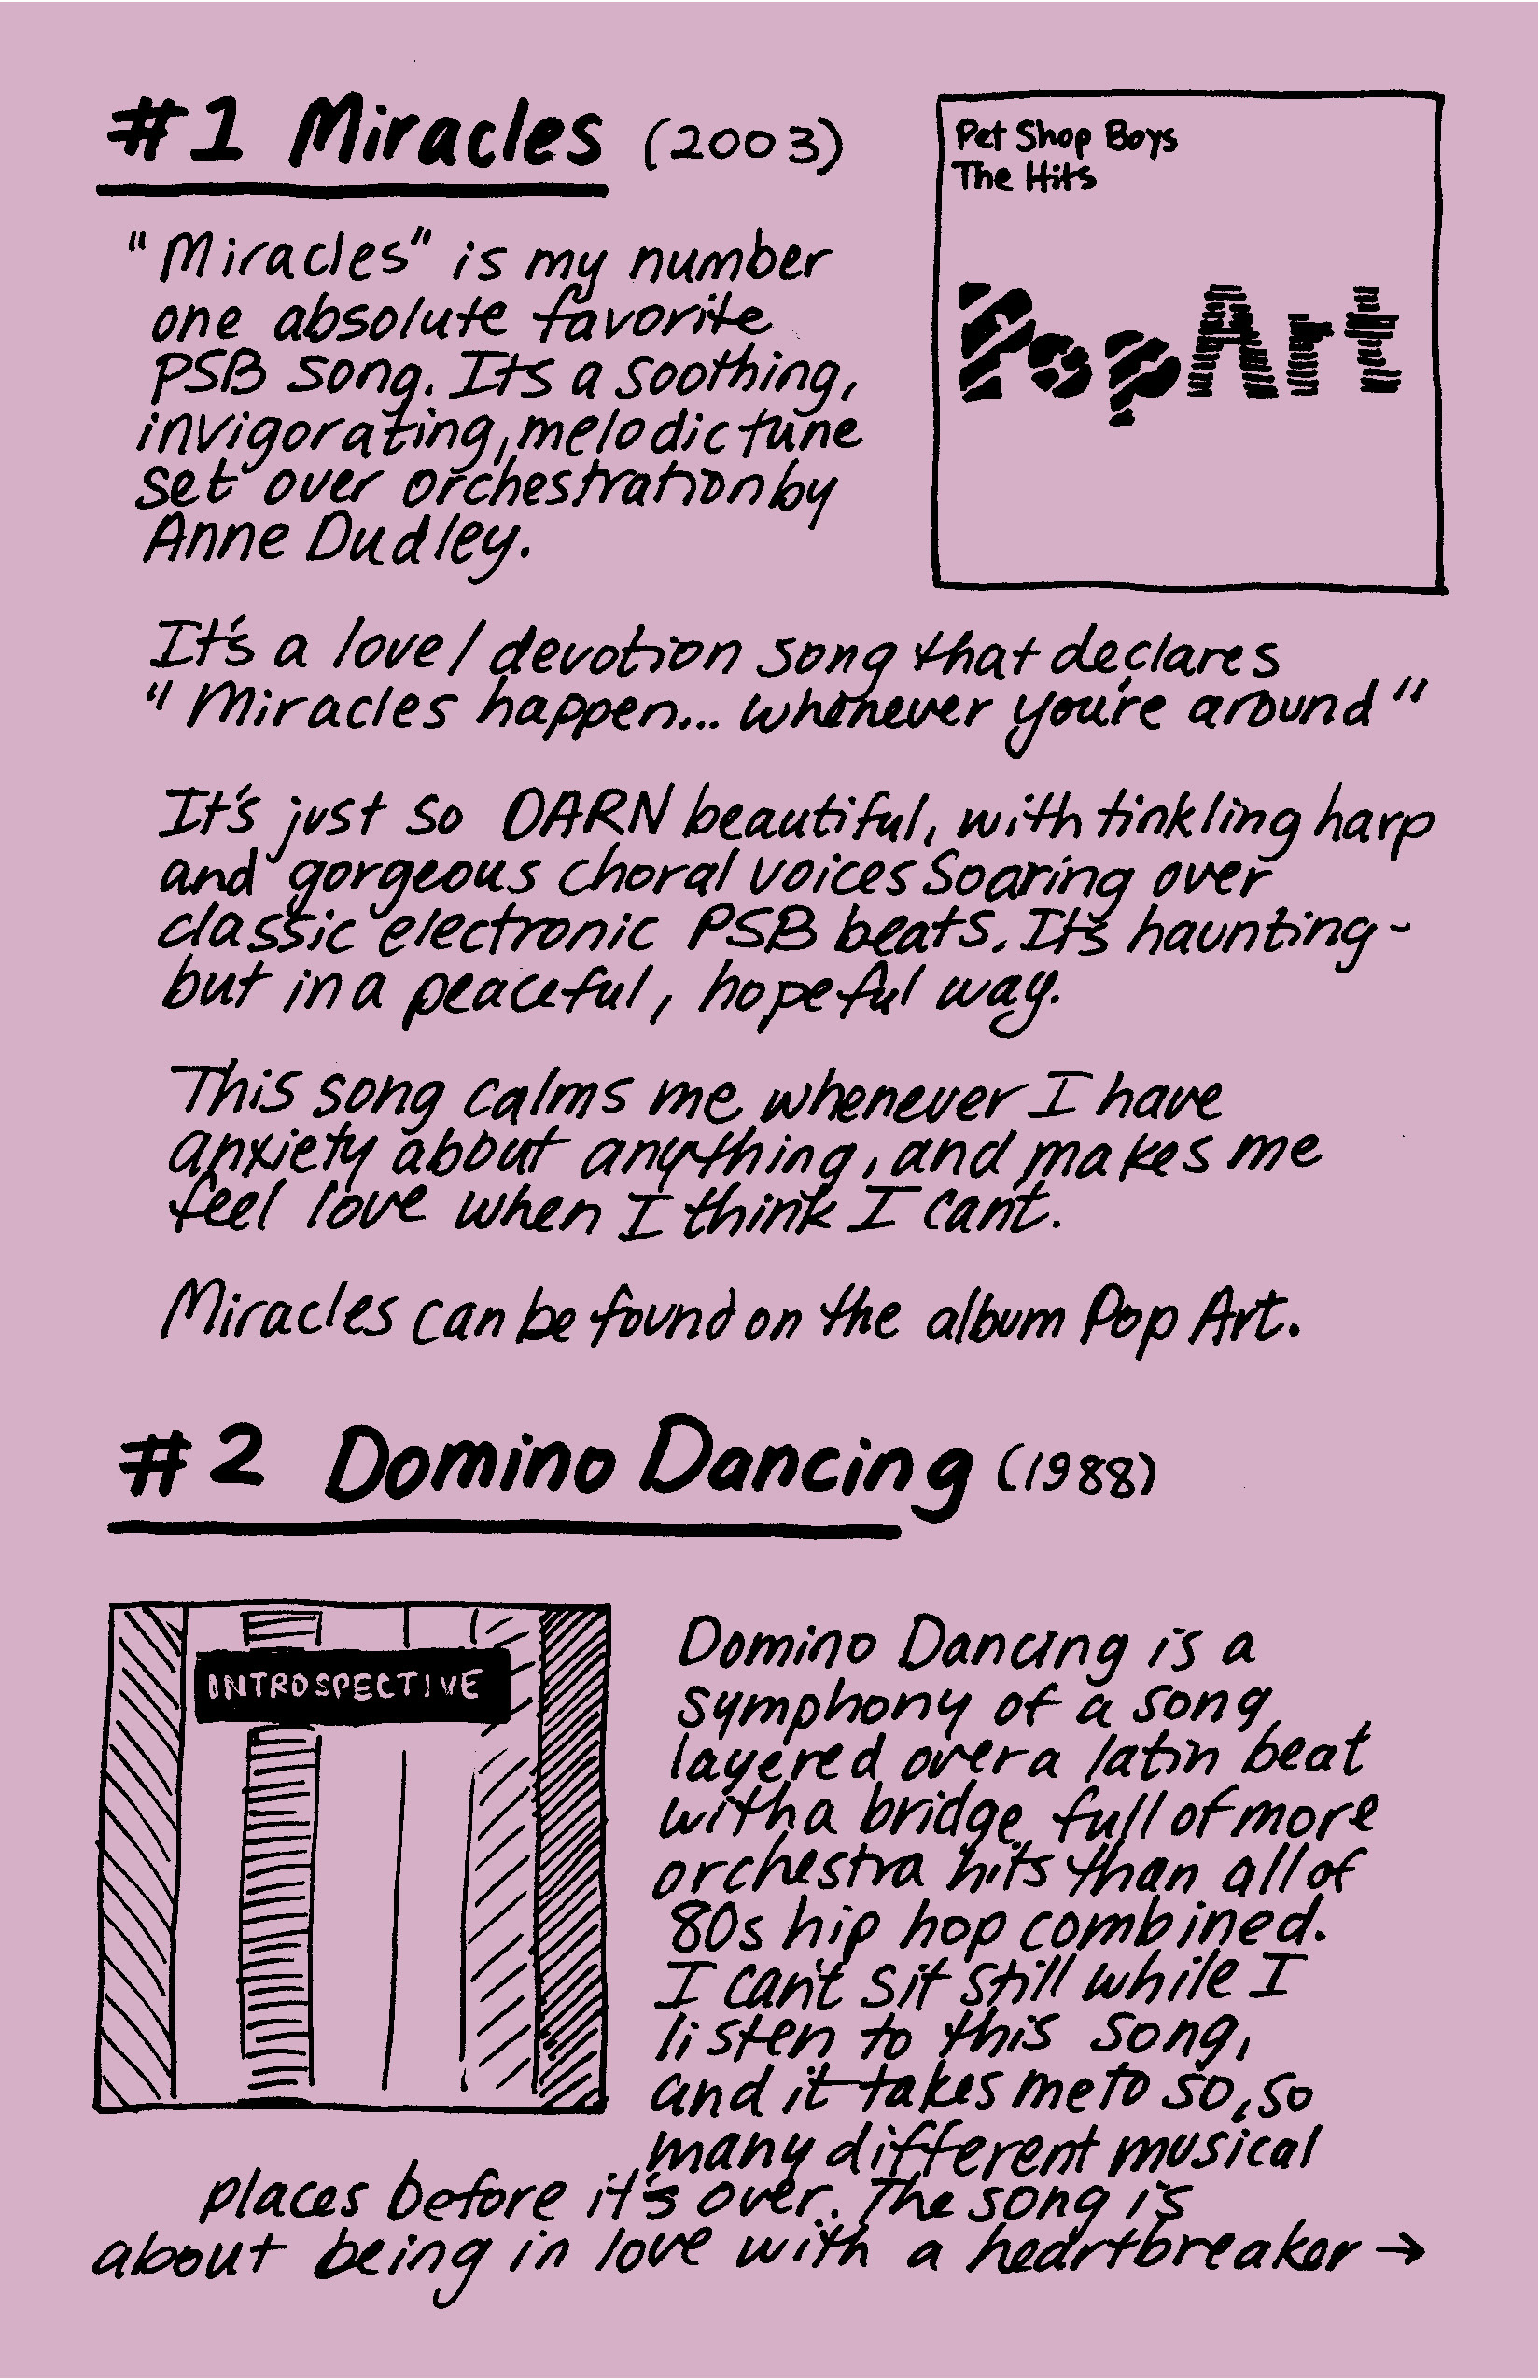 #1 Miracles (2003)
Pet Shop Boys
The Hits
PopArt
"Miracles" is my number
one absolute favorite
PSB song. Its a soothing,
invigorating, melodic tune
set over orchestration by
Anne Dudley.
It's a love/devotion song that declares
"Miracles happen... whenever you're around"
It's just so DARN beautiful, with tinkling harp
and gorgeous choral voices soaring over
classic electronic PSB beats. It's haunting -
but in a peaceful, hopeful way.
This song calms me whenever I have
anxiety about anything, and makes me
feel love when I think I can't.
Miracles can be found on the album Pop Art.
#2 Domino Dancing (1988)
INTROSPECTIVE
Domino Dancing is a
symphony of a song
layered over a latin beat
with a bridge full of more
orchestra hits than all of
80s hip hop combined.
I can't sit still while I
listen to this song,
and it takes me to so, so
many different musical
places before it's over. The song is
about being in love with a heartbreaker →